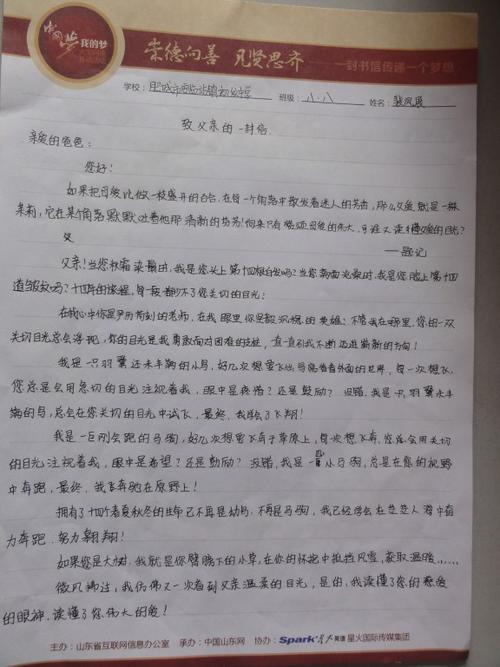 中国梦 我的梦
崇德向善 见贤思齐 一封书信传递一个梦想
学校: 肥城市 班级: 八.八 姓名: 张风
致父亲的一封信
亲爱的爸爸:
您好!
如果把母爱比做一枝盛开的百合,在每一个角落中散发着迷人的芳香,那么父爱就是一株
茉莉,它在某个角落默默吐着他那清新的芬芳!向来只有称颂母爱的伟大,可谁又读懂父爱的目光?
——题记
父亲!当您两鬓染霜时,我是您头上第十四根白发吗?当您满面沧桑时,我是您脸上第十四
道皱纹吗?十四年的旅程,每一段都少不了您关切的目光:
在我心中你是严厉苛刻的老师,在我眼里你是沉稳的英雄;不管我在哪里,您的一双
关切目光总会浮现,你的目光是我勇敢面对困难的,一直直引我不断迈进崭新的方向!
我是一只羽翼还未丰满的小鸟,好几次想要飞出鸟窝看看外面的世界,每一次想飞,
您总是会用急切的目光注视着我,眼中是疼惜?还是鼓励?没错,我是一只羽翼未丰
满的鸟,总会在您关切的目光中试飞,最终,我学会了飞翔!
我是一匹刚会跑的马驹,好几次想要飞奔于草原上,每次想飞奔,您总会用关切
的目光注视着我,眼中是希望?还是鼓励?没错,我是一匹小马驹,总是在您的视野
中奔跑,最终,我飞奔驰在原野上!
拥有了十四个春夏秋冬的生命已不再是幼鸟,不再是马驹,我已经学会在茫茫人海中奋
力奔跑,努力翱翔!
如果您是大树,我就是你臂腕下的小草,在你的怀抱中抵挡风雪,获取温暖……
微风拂过,我仿佛又一次看到父亲温柔的目光,是的,我读懂了您的慈爱
的眼神,读懂了您伟大的爱!
主办:山东省互联网信息办公室 承办:中国山东网 协办:Spark 星火英语 星火国际传媒集团